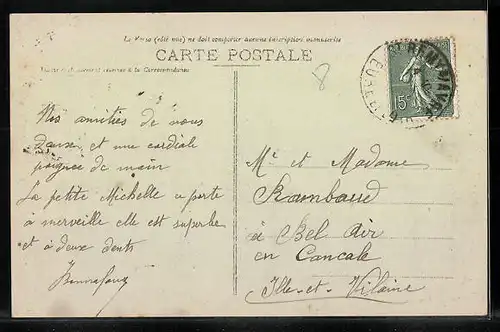 Le Verso (côté vue) ne doit comporter aucune inscription manuscrite
CARTE POSTALE
réservée à la Correspondance
8
15c
Nos amitiés de nous
deux, et une cordiale
poignée de main
La petite Michelle se porte
à merveille elle est superbe
et a deux dents
Bonnafous
Mr et Madame
Rambaud
à Bel Air
en Cancale
Ille-et-Vilaine